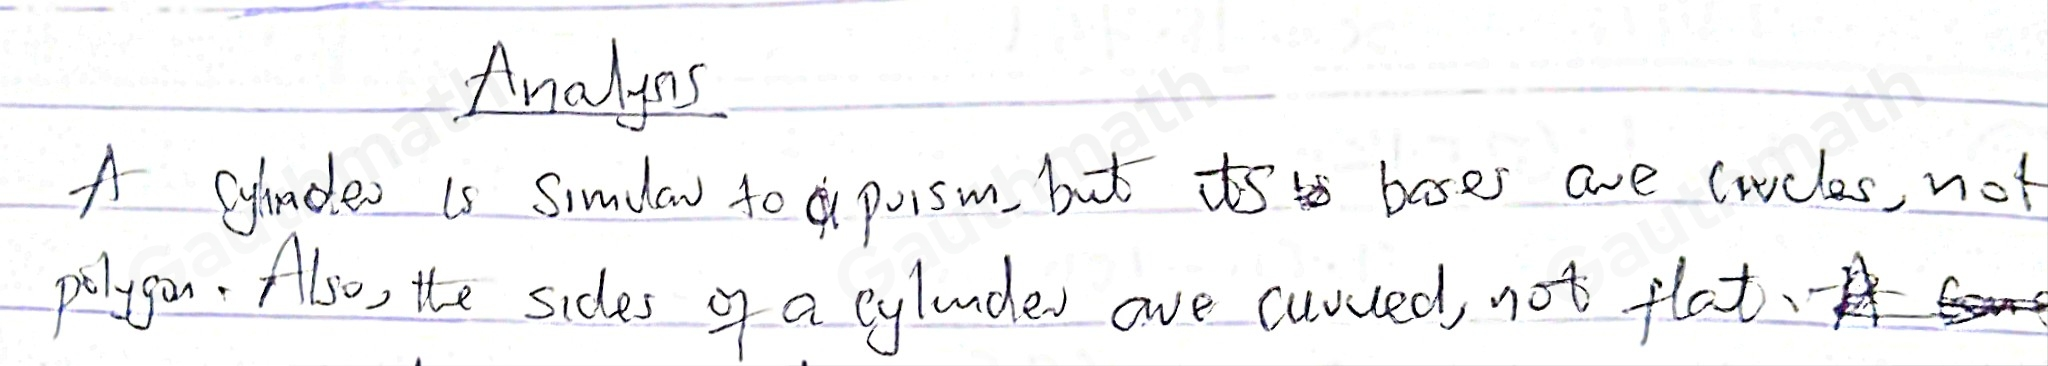 Analysis
A cylinder is similar to a prism, but its bases are circles, not
polygon. Also, the sides of a cylinder are curved, not flat.